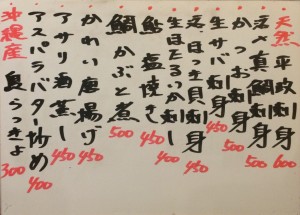 天然 平政刺身 600
活〆真鯛刺身 500
かつお刺身 500
生サバ刺身 450
活ほっき貝刺身 450
生ほたるいか刺し 400
鮎塩焼き 450
鯛かぶと煮 500
かれい唐揚げ 450
アサリ酒蒸し 450
アスパラバター炒め 400
沖縄産 島らっきょ 300